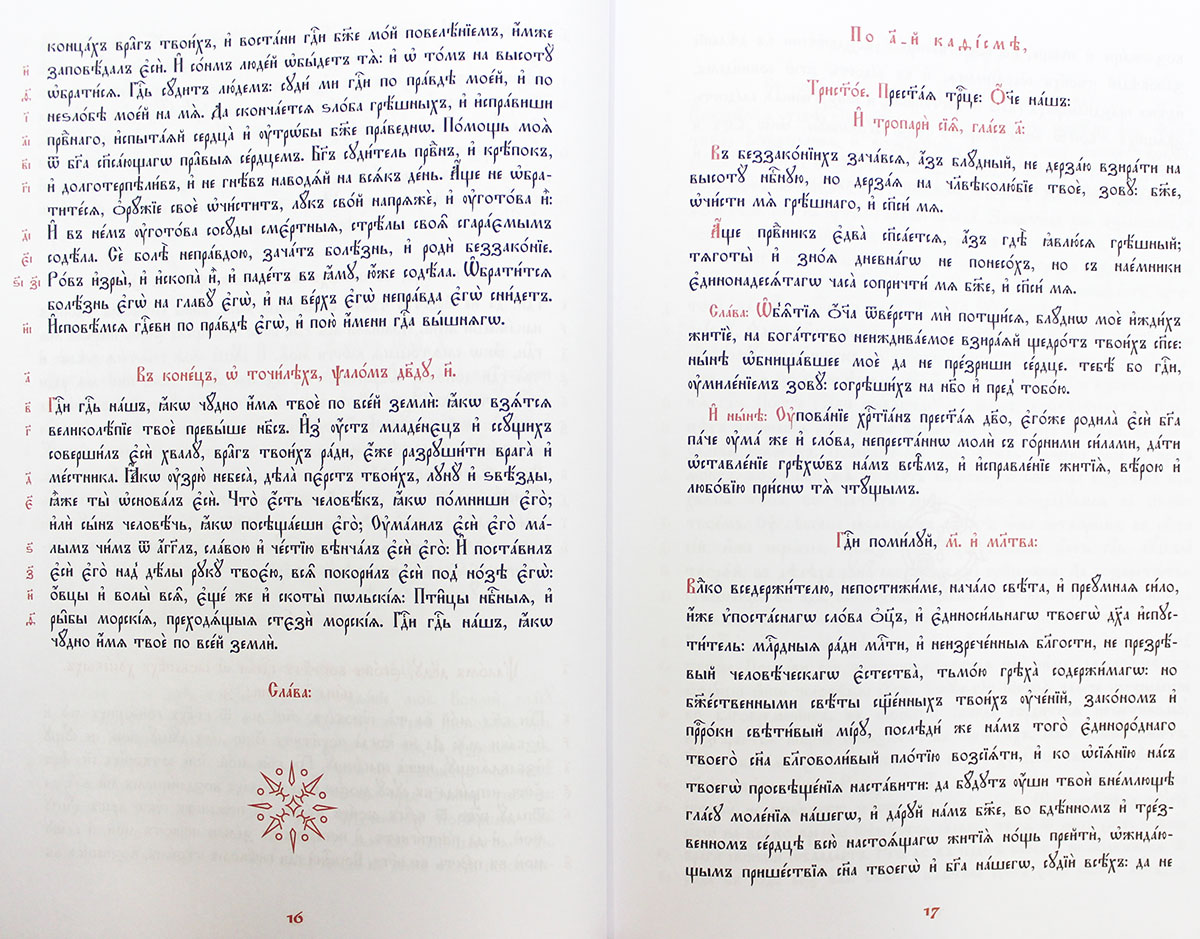 конца́хъ вра̑гъ твои́хъ, и҆ воста́ни гдⷭ҇и бж҃е мо́й повелѣ́нїемъ, и҆́мже
и҃ заповѣ́далъ є҆сѝ. И҆ со́нмъ люде́й ѡ҆бы́детъ тѧ̀: и҆ ѡ҆ то́мъ на высотꙋ̀
ѳ҃ ѡ҆брати́сѧ. Гдⷭ҇ь сꙋ́дитъ лю́демъ: сꙋди́ ми гдⷭ҇и по пра́вдѣ мое́й, и҆ по
і҃ неѕло́бѣ мое́й на мѧ̀. Да сконча́етсѧ ѕло́ба грѣ́шныхъ, и҆ и҆спра́виши
а҃і првⷣнаго, и҆спыта́ѧй сердца̀ и҆ ᲂу҆трѡ́бы бж҃е пра́веднѡ. По́мощь моѧ̀
в҃і ѿ бг҃а сп҃са́ющагѡ пра̑выѧ се́рдцемъ. Бг҃ъ сꙋди́тель првⷣнъ, и҆ крѣ́покъ,
г҃і и҆ долготерпѣли́въ, и҆ не гнѣ́въ наводѧ́й на всѧ́къ де́нь. А҆́ще не ѡ҆бра-
тите́сѧ, ѻ҆рꙋ́жїе своѐ ѡ҆чи́ститъ, лꙋ́къ сво́й напрѧжѐ, и҆ ᲂу҆гото́ва и҆̀:
д҃і И҆ въ не́мъ ᲂу҆гото́ва сосꙋ́ды смє́ртныѧ, стрѣ́лы своѧ̑ сгара́ємымъ
є҃і содѣ́ла. Сѐ болѣ̀ непра́вдою, зача́тъ болѣ́знь, и҆ родѝ беззако́нїе.
ѕ҃і з҃і Ро́въ и҆зры̀, и҆ и҆скопа̀ и҆̀, и҆ паде́тъ въ ꙗ҆́мꙋ, ю҆́же содѣ́ла. Ѡ҆брати́тсѧ
болѣ́знь є҆гѡ̀ на главꙋ̀ є҆гѡ̀, и҆ на ве́рхъ є҆гѡ̀ непра́вда є҆гѡ̀ сни́детъ.
и҃і И҆сповѣ́мсѧ гдⷭ҇еви по пра́вдѣ є҆гѡ̀, и҆ пою̀ и҆́мени гдⷭ҇а вы́шнѧгѡ.
а҃ Въ коне́цъ, ѡ҆ точи́лѣхъ, ѱало́мъ дв҃дꙋ, и҃.
в҃ Гдⷭ҇и гдⷭ҇ь на́шъ, ꙗ҆́кѡ чꙋ́дно и҆́мѧ твоѐ по все́й землѝ: ꙗ҆́кѡ взѧ́тсѧ
г҃ великолѣ́пїе твоѐ превы́ше нб҃съ. И҆з̾ ᲂу҆́стъ младе́нєцъ и҆ ссꙋ́щихъ
соверши́лъ є҆сѝ хвалꙋ̀, вра̑гъ твои́хъ ра́ди, є҆́же разрꙋши́ти врага̀ и҆
д҃ ме́стника. Ꙗ҆́кѡ ᲂу҆зрю̀ небеса̀, дѣла̀ пє́рстъ твои́хъ, лꙋнꙋ̀ и҆ ѕвѣ́зды,
є҃ ꙗ҆̀же ты̀ ѡ҆снова́лъ є҆сѝ. Что́ є҆сть человѣ́къ, ꙗ҆́кѡ по́мниши є҆го̀;
и҆лѝ сы́нъ человѣ́чь, ꙗ҆́кѡ посѣща́еши є҆го̀; Оу҆ма́лилъ є҆сѝ є҆го̀ ма́-
ѕ҃ лымъ чи́мъ ѿ а҆́гг҃лъ, сла́вою и҆ че́стїю вѣнча́лъ є҆сѝ є҆го̀: И҆ поста́вилъ
з҃ є҆сѝ є҆го̀ над̾ дѣ́лы рꙋкꙋ̀ твоє́ю, всѧ̑ покори́лъ є҆сѝ под̾ но́зѣ є҆гѡ̀:
и҃ ѻ҆́вцы и҆ волы̀ всѧ̑, є҆ще́ же и҆ скоты̀ пѡльскі́ѧ: Пти̑цы нбⷭ҇ныѧ, и҆
ѳ҃ ры̑бы морскі́ѧ, преходѧ́щыѧ стєзѝ морскі́ѧ. Гдⷭ҇и гдⷭ҇ь на́шъ, ꙗ҆́кѡ
чꙋ́дно и҆́мѧ твоѐ по все́й землѝ.
Сла́ва:
16
По а҃-й каѳі́смѣ,
Трист҃о́е. Прест҃а́ѧ трⷪ҇це: Ѻ҆́ч҃е на́шъ:
И҆ тропарѝ сїѧ̑, гла́съ а҃:
Въ беззако́нїихъ зача́всѧ, а҆́зъ блꙋ́дный, не дерза́ю взира́ти на
высотꙋ̀ нбⷭ҇нꙋю, но дерза́ѧ на чл҃вѣколю́бїе твоѐ, зовꙋ̀: бж҃е,
ѡ҆чи́сти мѧ̀ грѣ́шнаго, и҆ сп҃си́ мѧ.
А҆́ще првⷣникъ є҆два̀ сп҃са́етсѧ, а҆́зъ гдѣ̀ ꙗ҆влю́сѧ грѣ́шный;
тѧготы̀ и҆ зно́ѧ дневна́гѡ не понесо́хъ, но съ нае́мники
є҆динонадесѧ́тагѡ часа̀ сопричти́ мѧ бж҃е, и҆ сп҃си́ мѧ.
Сла́ва: Ѡ҆б̾ѧ̑тїѧ ѻ҆́ч҃а ѿве́рсти мѝ потщи́сѧ, блꙋ́днѡ моѐ и҆жди́хъ
житїѐ, на бога́тство неиждива́емое взира́ѧй щедро́тъ твои́хъ сп҃се:
ны́нѣ ѡ҆бнища́вшее моѐ да не пре́зриши се́рдце. тебѣ́ бо гдⷭ҇и,
ᲂу҆миле́нїемъ зовꙋ̀: согрѣши́хъ на нб҃о и҆ пред̾ тобо́ю.
И҆ ны́нѣ: Оу҆пова́нїе хрⷭ҇тїа́нъ прест҃а́ѧ дв҃о, є҆го́же родила̀ є҆сѝ бг҃а
па́че ᲂу҆ма́ же и҆ сло́ва, непреста́ннѡ молѝ съ го́рними си́лами, да́ти
ѡ҆ставле́нїе грѣхѡ́въ на́мъ всѣ̑мъ, и҆ и҆справле́нїе житїѧ̀, вѣ́рою и҆
любо́вїю при́снѡ тѧ̀ чтꙋ́щымъ.
Гдⷭ҇и поми́лꙋй, м҃. и҆ мл҃тва:
Влⷣко вседержи́телю, непостижи́ме, нача́ло свѣ́та, и҆ преꙋ́мнаѧ си́ло,
и҆́же ѵ҆поста́снагѡ сло́ва ѻ҆ц҃ъ, и҆ є҆диноси́льнагѡ твоегѡ̀ дх҃а и҆спꙋс-
ти́тель: млⷭ҇рдныѧ ра́ди млⷭ҇ти, и҆ неизрече́нныѧ бл҃гости, не презрѣ́-
вый человѣ́ческагѡ є҆стества̀, тьмо́ю грѣха̀ содержи́магѡ: но
бжⷭ҇твенными свѣ́ты сщ҃е́нныхъ твои́хъ ᲂу҆че́нїй, зако́номъ и҆
прⷪ҇рѡ́ки свѣти́вый мі́рꙋ, послѣди́ же на́мъ того̀ є҆диноро́днаго
твоего̀ сн҃а бл҃говоли́вый пло́тїю возсїѧ́ти, и҆ ко ѡ҆сїѧ́нїю на́съ
твоегѡ̀ просвѣще́нїѧ наста́вити: да бꙋ́дꙋтъ ᲂу҆́ши твоѝ вне́млющѣ
гла́сꙋ моле́нїѧ на́шегѡ, и҆ да́рꙋй на́мъ бж҃е, во бдѣ́нномъ и҆ тре́з-
венномъ се́рдцѣ всю̀ настоѧ́щагѡ житїѧ̀ но́щь прейтѝ, ѡ҆жида́ю-
щымъ прише́ствїѧ сн҃а твоегѡ̀ и҆ бг҃а на́шегѡ, сꙋдїѝ всѣ́хъ: да не
17